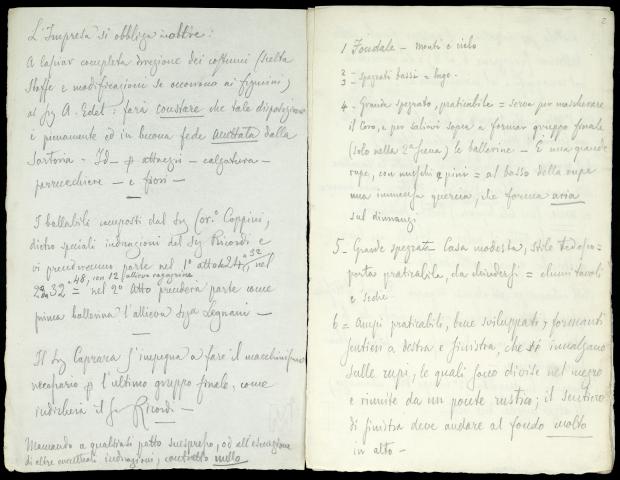 L'Impresa si obbliga inoltre:
A lasciar completa direzione dei costumi (scelta
stoffe e modificazioni se occorrono ai figurini)
al Sig A. Edel: farà constare che tale disposizione
è pienamente ed in buona fede accettata dalla
Sartoria - Id - p attrezzi - calzatura -
parrucchiere - e fiori -
I ballabili composti dal Sig Cor.º Coppini,
dietro speciali indicazioni del Sig Ricordi e
vi prenderanno parte nel 1º atto 24, 32 nel
2º 32 = 48, con 12 allieve ragazzine
= nel 2º Atto prenderà parte come
prima ballerina l'allieva Sga Legnani -
Il Sig Caprara s'impegna a fare il macchinismo
necessario p l'ultimo gruppo finale, come
indicherà il Sig Ricordi -
Mancando a qualsiasi patto suespresso, od all'esecuzione
di altre eventuali indicazioni, contratto nullo
2
1 Fondale - monti e cielo
2 - 3 - spezzati bassi = lago -
4 - Grande spezzato, praticabile = serve per mascherare
il Coro, e per salirvi sopra a formar gruppo finale
(solo nella 2ª Scena) le ballerine - È una grande
rupe, con muschi e pini = al basso della rupe
una immensa quercia, che forma aria
sul dinnanzi
5 - Grande spezzato Casa modesta, stile tedesco =
porta praticabile, da chiudersi = alcuni tavoli
e sedie.
6 = Ampi praticabili, bene sviluppati, formanti
sentieri a destra e sinistra, che si innalzano
sulle rupi, le quali sono divise nel mezzo
e riunite da un ponte rustico; il sentiero
di sinistra deve andare al fondo molto
in alto -